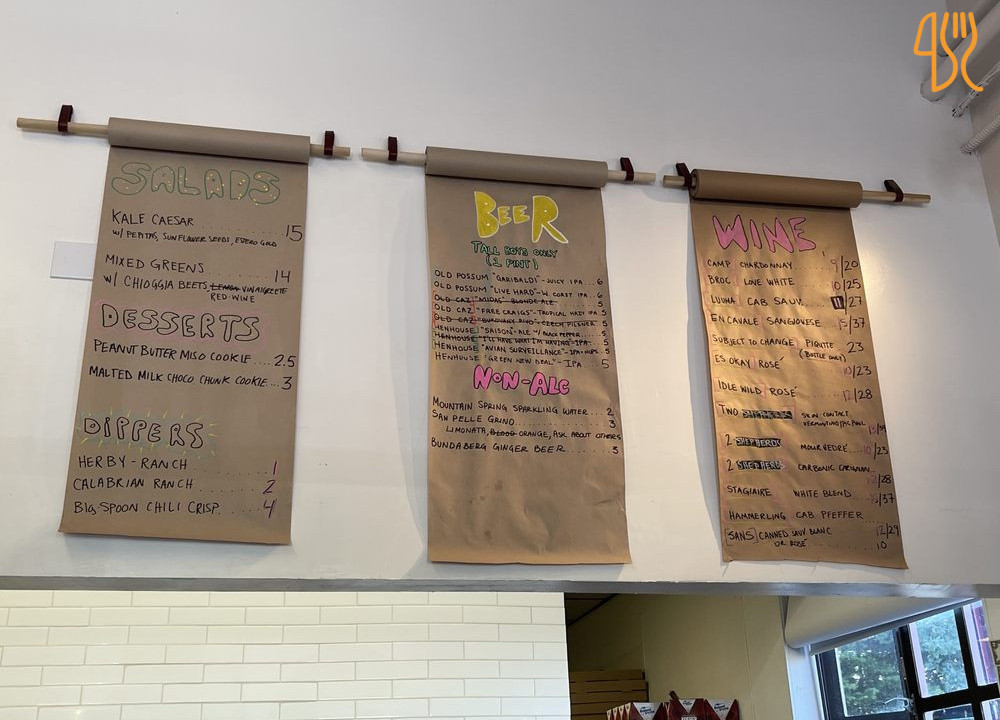 SALADS
KALE CAESAR
W/ PEPITAS, SUNFLOWER SEEDS, ESTERO GOLD 15
MIXED GREENS ........ 14
W/ CHIOGGIA BEETS, LEMON VINAIGRETTE
RED WINE
DESSERTS
PEANUT BUTTER MISO COOKIE .... 2.5
MALTED MILK CHOCO CHUNK COOKIE ... 3
DIPPERS
HERBY-RANCH ........ 1
CALABRIAN RANCH ........ 2
BIG SPOON CHILI CRISP ..... 4
BEER
TALL BOYS ONLY
(1 PINT)
OLD POSSUM "GARIBALDI" - JUICY IPA ... 6
OLD POSSUM "LIVE HARD" - W. COAST IPA ... 6
OLD CAZ "MIDAS" BLONDE ALE ... 5
OLD CAZ "FREE CRAIGS" - TROPICAL HAZY IPA . 5
OLD CAZ CZECH PILSNER . 5
HENHOUSE "SAISON" ALE W/ BLACK PEPPER ... 5
HENHOUSE "I'LL HAVE WHAT I'M HAVING" IPA .. 5
HENHOUSE "AVIAN SURVEILLANCE" - IPA 5
HENHOUSE "GREEN NEW DEAL" - IPA ... 5
NON-ALC
MOUNTAIN SPRING SPARKLING WATER ... 2
SAN PELLE GRINO ........ 3
LIMONATA, BLOOD ORANGE, ASK ABOUT OTHERS
BUNDABERG GINGER BEER ....... 3
WINE
CAMP CHARDONNAY ...... 9/20
BROC LOVE WHITE ..... 10/25
LUUHA CAB SAUV. 11/27
ENCAVALE SANGIOVESE ... 15/37
SUBJECT TO CHANGE PIQUTE .. 23
(BOTTLE ONLY)
ES OKAY ROSÉ ....... 10/23
IDLE WILD ROSÉ ..... 12/28
TWO SHEPHERDS SKIN CONTACT
VERMENTINO/PICPOUL
2 SHEPHERDS MOURVEDRE ... 10/23
2 SHEPHERDS CARBONIC CARIGNAN
12/28
STAGIAIRE WHITE BLEND ... 15/37
HAMMERLING CAB PFEFFER
[SANS] CANNED SAUV BLANC 12/29
OR ROSÉ ........ 10